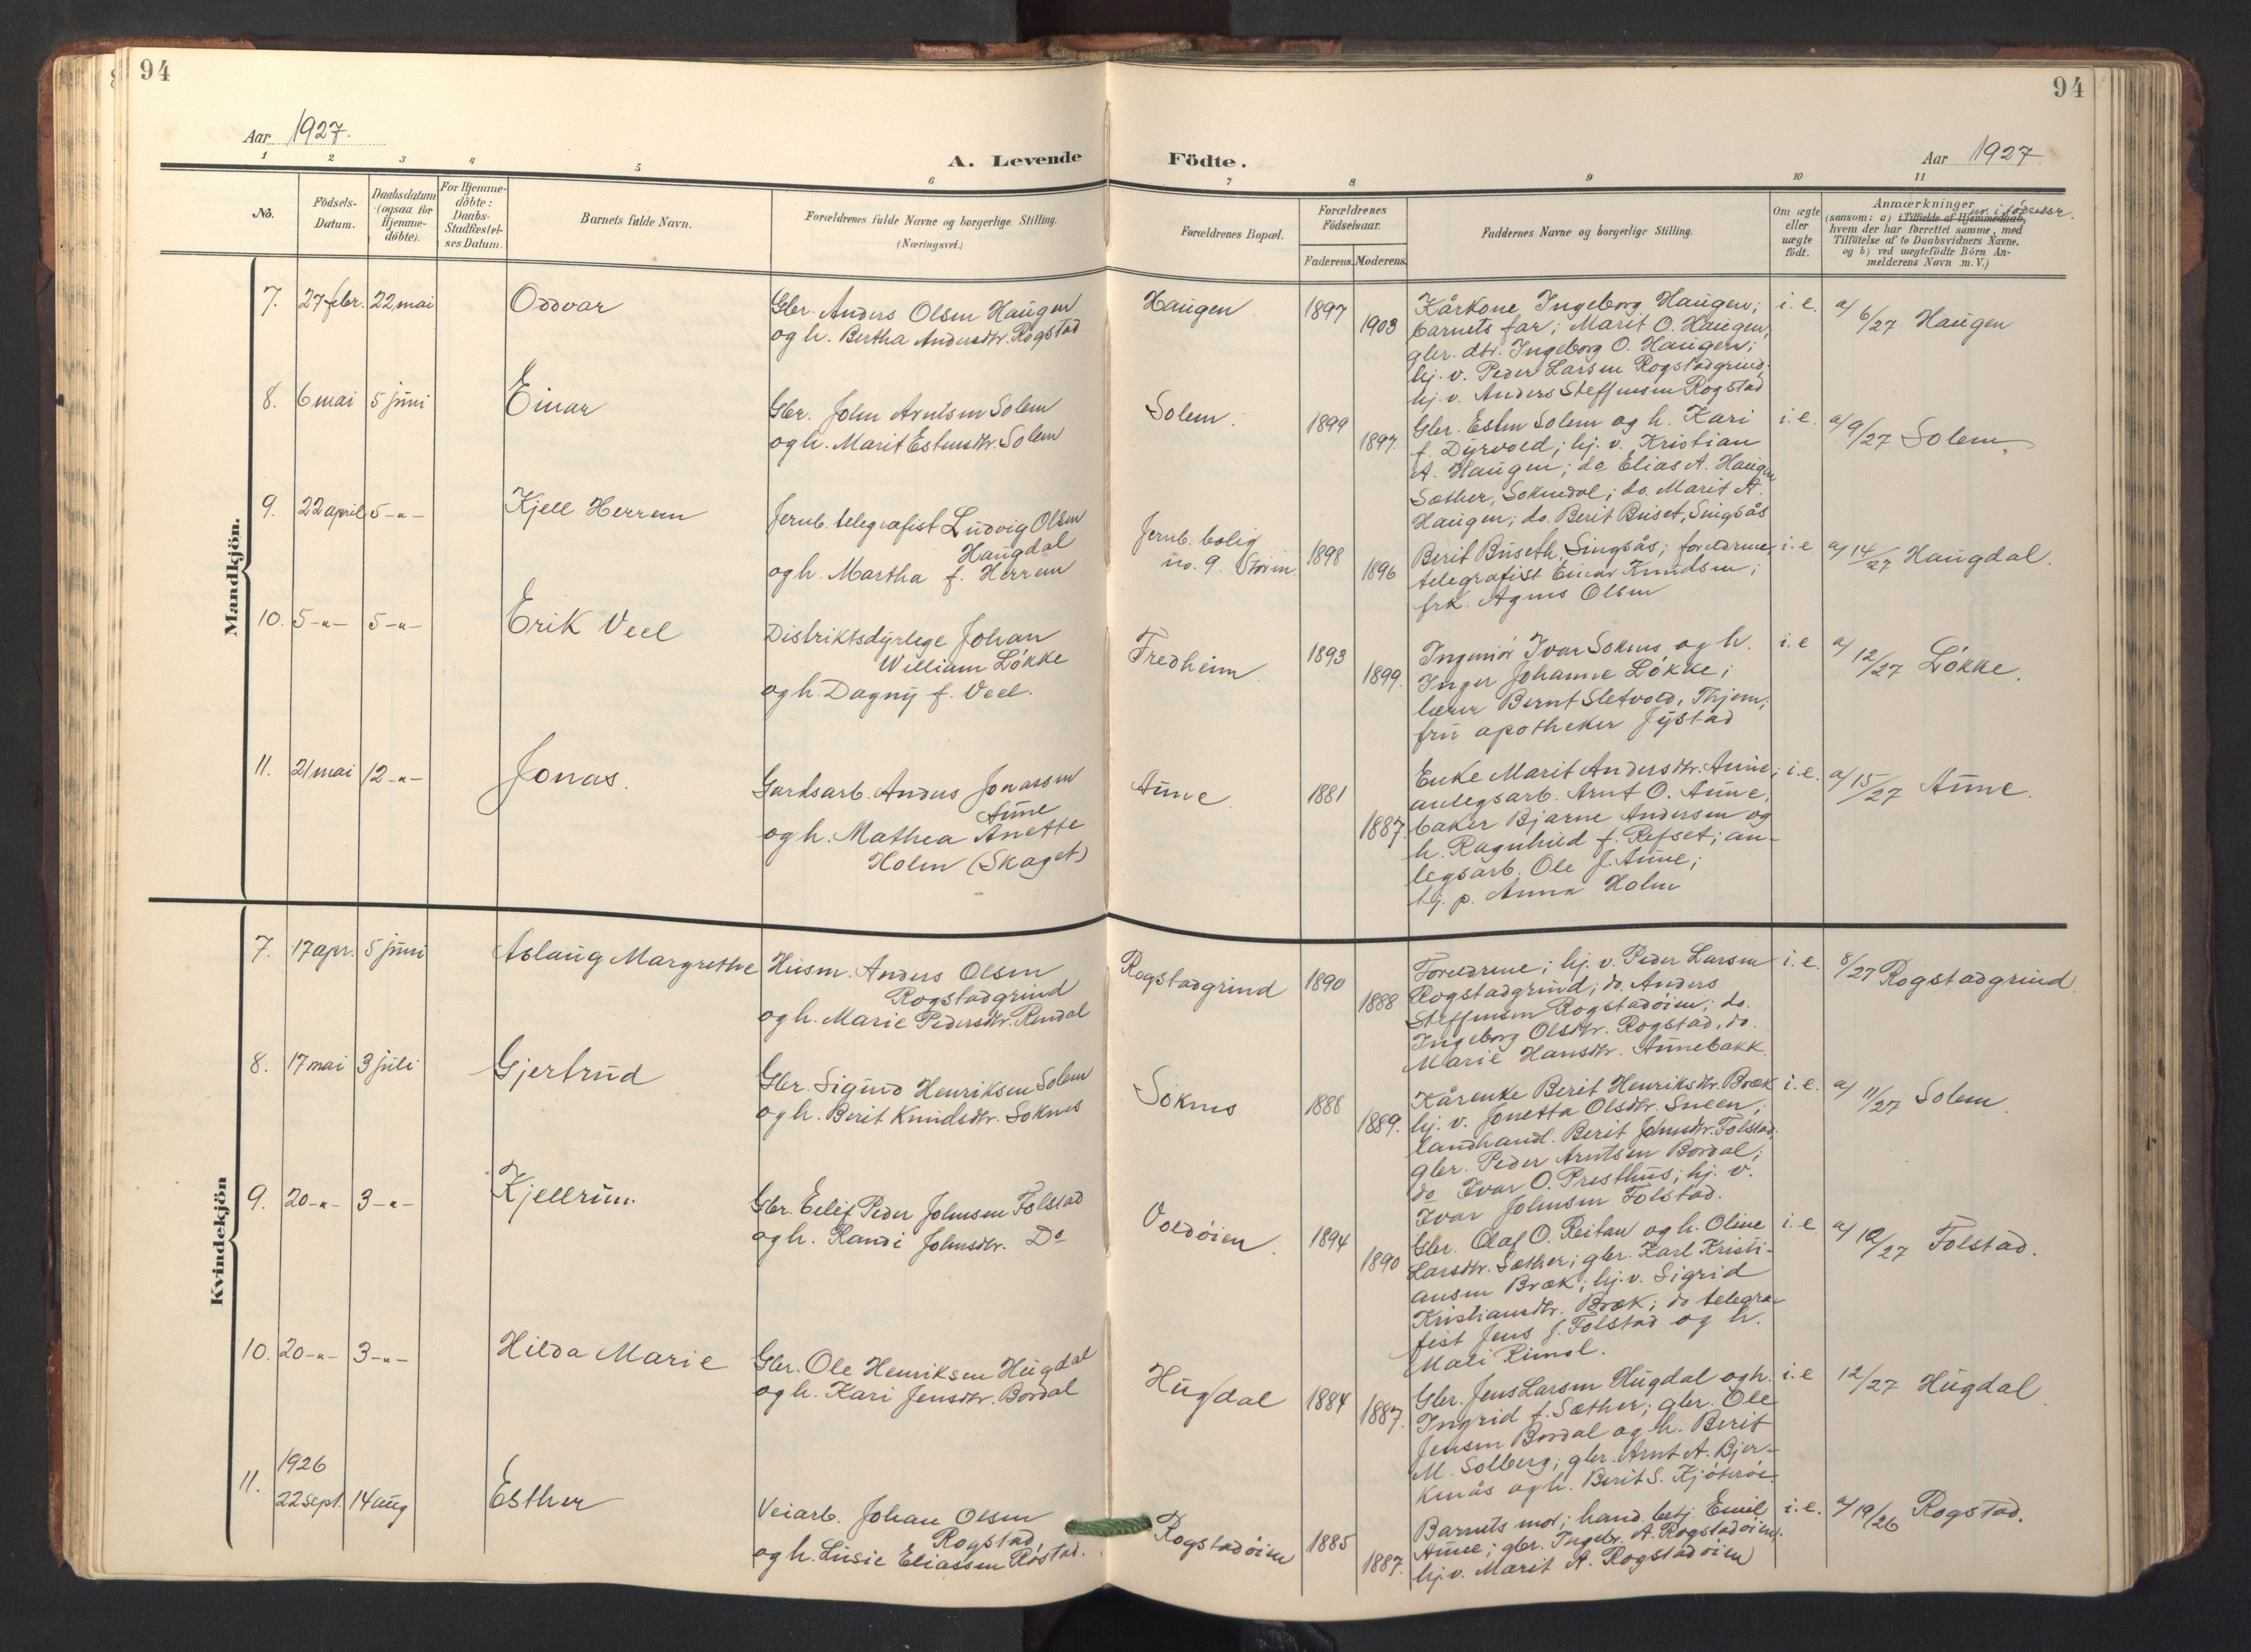 94
94
Aar 1927.
A. Levende Födte.
Aar 1927
1 2 3 4 5 6 7 8 9 10 11
No.
Födsels-Datum.
Daabsdatum (ogsaa for Hjemme-döbte).
For Hjemme-döbte: Daabs-Stadfæstel-ses Datum.
Barnets fulde Navn.
Forældrenes fulde Navne og borgerlige Stilling.
(Næringsvei.)
Forældrenes Bopæl.
Forældrenes Födselsaar.
Faderens. Moderens.
Faddernes Navne og borgerlige Stilling.
Om ægte eller uægte födt.
Anmærkninger
(saasom: a) i Tilfælde af Hjemmedaab,
hvem der har forrettet samme, med
Tilföielse af to Daabsvidners Navne,
og b) ved uægtefödte Börn An-
melderens Navn m. V.)
Mandkjön.
7. 27 febr. 22 mai Oddvar
Gbr. Anders Olsen Haugen
og h. Bertha Andersdtr. Rogstad
Haugen 1897 1903
Kårkone Ingeborg Haugen;
barnets far; Marit O. Haugen,
gbr. dtr. Ingeborg O. Haugen;
hj. v. Peder Larsen Rogstadgrind,
hj. v. Anders Steffensen Rogstad
i. e. a/ 6/27 Haugen
8. 6 mai 5 juni Einar
Gbr. John Arntsen Solem
og h. Marit Estensdtr. Solem
Solem. 1899 1897.
Gbr. Esten Solem og h. Kari
f. Dyrvold; hj. v. Kristian
A. Haugen; do Elias A. Haugen
Sæther, Soknedal; do. Marit A.
Haugen; do. Berit Buset, Singsås
i. e. a/ 9/27 Solem
9. 22 april 5 -"- Kjell Herrem
Jernb. telegrafist Ludvig Olsen
Haugdal
og h. Martha f. Herrem
Jernb. bolig
no. 9. Støren. 1898 1896
Berit Buseth, Singsås; foreldrene,
telegrafist Einar Knudsen;
frk. Agnes Olsen
i. e a/ 14/27 Haugdal.
10. 5 -"- 5 -"- Erik Veel
Distriktsdyrlege Johan
William Løkke
og h. Dagny f. Veel.
Fredheim. 1893 1899.
Ingeniør Ivar Soknes og h.
Inger Johanne Løkke;
lærer Bernt Sletvold, Thjem;
fru apotheker Jystad
i. e a/ 12/27 Løkke.
11. 21 mai 12 -"- Jonas.
Gardsarb. Anders Jonassen
Aune
og h. Mathea Anette
Holm (Skaget)
Aune. 1881 1887.
Enke Marit Andersdtr. Aune;
anlegsarb. Arnt O. Aune;
baker Bjarne Andersen og
h. Ragnhild f. Refset; an-
legsarb. Ole J. Aune;
hj. p. Anna Holm
i. e. a/ 15/27 Aune.
Kvindekjön
7. 17 apr. 5 juni Aslaug Margrethe
Husm. Anders Olsen
Rogstadgrind
og h. Marie Pedersdtr. Rendal
Rogstadgrind 1890 1888
Foreldrene; hj. v. Peder Larsen
Rogstadgrind; do. Anders
Steffensen Rogstadøien; do.
Ingeborg Olsdtr. Rogstad, do.
Marie Hansdtr. Aunebakk.
i. e. 8/27 Rogstadgrind.
8. 17 mai 3 juli Gjertrud
Gbr. Sigurd Henriksen Solem
og h. Berit Knudsdtr. Soknes
Soknes 1888 1889.
Kårenke Berit Henriksdtr. Bræk
hj. v. Jonetta Olsdtr. Sneen;
landhandl. Berit Johnsdtr. Folstad;
gbr. Peder Arntsen Bordal;
do Ivar O. Presthus; hj. v.
Ivar Johnsen Folstad.
i. e. a/ 11/27 Solem.
9. 20 -"- 3 -"- Kjellrun.
Gbr. Eilif Peder Johnsen Folstad
og h. Randi Johnsdtr. Do
Voldøien. 1894 1890
Gbr. Olaf O. Reitan og h. Oline
Larsdtr. Sæther; gbr. Karl Kristi-
ansen Bræk; hj. v. Sigrid
Kristiansdtr. Bræk; do telegra-
fist Jens J. Folstad og h.
Mali Rimol.
i. e a/ 12/27 Folstad.
10. 20 -"- 3 -"- Hilda Marie
Gbr. Ole Henriksen Hugdal
og h. Kari Jensdtr. Bordal
Hugdal 1884 1887.
Gbr. Jens Larsen Hugdal og h.
Ingrid f. Sæther; gbr. Ole
Jensen Bordal og h. Berit
M. Solberg; gbr. Arnt A. Bjer-
knås og h. Berit S.
i. e 12/27 Hugdal.
11. 1926
22 sept. 14 aug Esther
Veiarb. Johan Olsen
Rogstad,
og h. Lusie Eliassen Røstad.
Rogstadøien 1885 1887.
Barnets mor; hand. betj. Emil
Aune; gbr. Ingebr. A. Rogstadøien;
hj. v. Marit A. Rogstadøien
i. e. a/ 19/26 Rogstad.